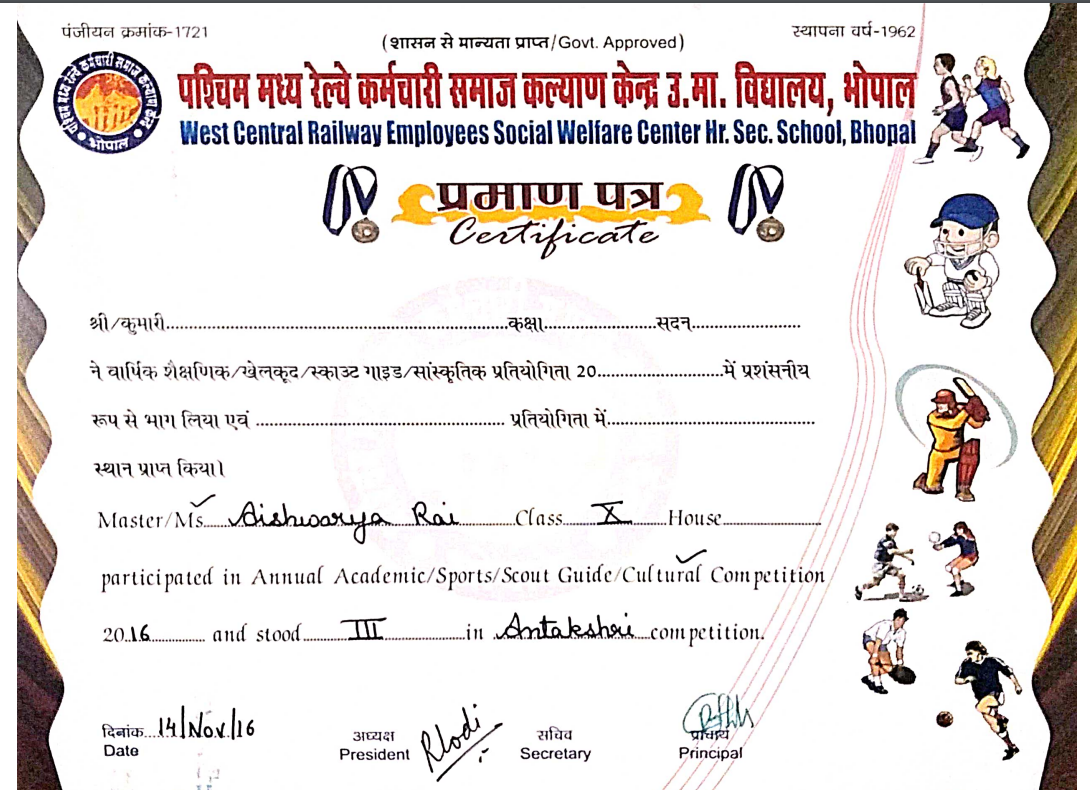 पंजीयन क्रमांक-1721
स्थापना वर्ष-1962
(शासन से मान्यता प्राप्त/Govt. Approved)
पश्चिम मध्य रेल्वे कर्मचारी समाज कल्याण केन्द्र उ.मा. विद्यालय, भोपाल
West Central Railway Employees Social Welfare Center Hr. Sec. School, Bhopal
पश्चिम मध्य रेल्वे कर्मचारी समाज कल्याण केन्द्र
भोपाल
प्रमाण पत्र
Certificate
श्री/कुमारी..........कक्षा..........सदन..........
ने वार्षिक शैक्षणिक/खेलकूद/स्काउट गाइड/सांस्कृतिक प्रतियोगिता 20..........में प्रशंसनीय
रूप से भाग लिया एवं .......... प्रतियोगिता में..........
स्थान प्राप्त किया।
Master/Ms. Aishwarya Rai Class X House..........
participated in Annual Academic/Sports/Scout Guide/Cultural Competition
2016 and stood III in Antakshri competition.
दिनांक 14/Nov/16
Date
अध्यक्ष
President
सचिव
Secretary
प्राचार्य
Principal